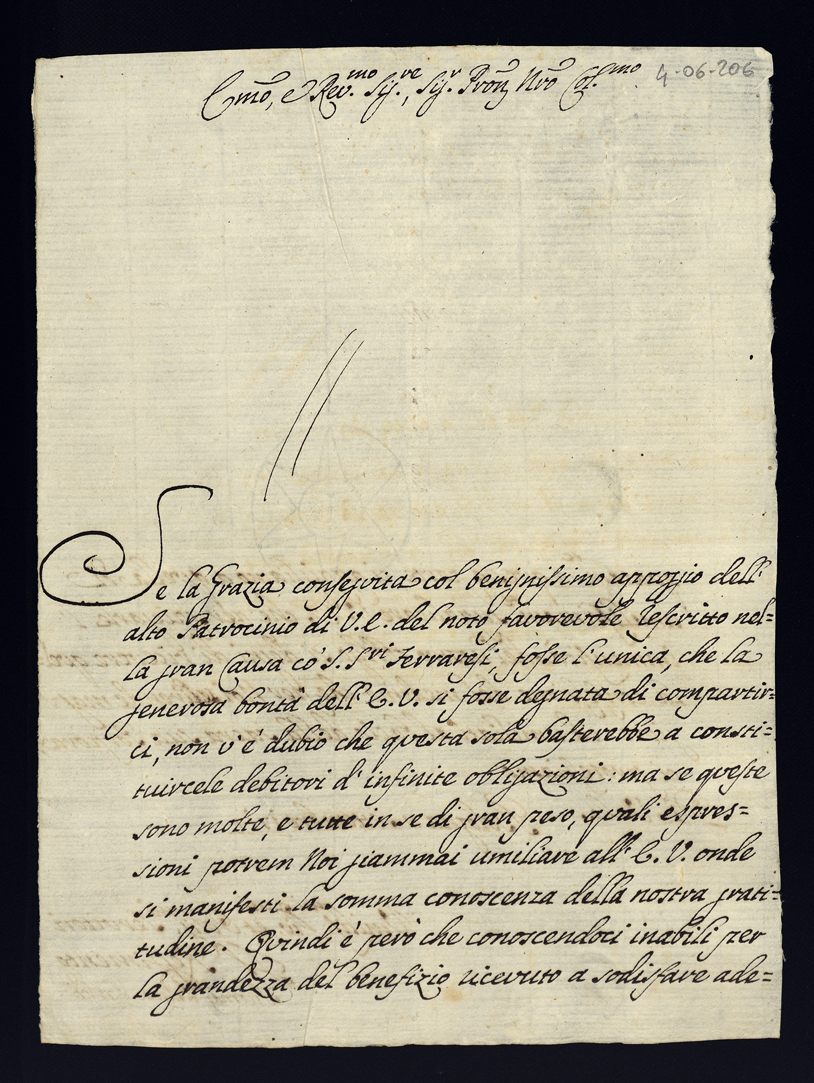 Emõ, e Rev.mo Sig.re, Sig.r Prõn Nrõ Col.mo
4-06-206
Se la Grazia conseguita col benignissimo appoggio dell'
alto Patrocinio di V.E. del noto favorevole Rescritto nel=
la gran Causa co' S.Sri Ferraresi, fosse l'unica, che la
generosa bontà dell'E.V. si fosse degnata di compartir=
ci, non v'è dubio che questa sola basterebbe a consti=
tuircele debitori d'infinite obligazioni: ma se queste
sono molte, e tutte in se di gran peso, quali espres=
sioni potrem Noi giammai umiliare all'E.V. onde
si manifesti la somma conoscenza della nostra grati=
tudine. Quindi è però che conoscendoci inabili per
la grandezza del benefizio ricevuto a sodisfare ade=